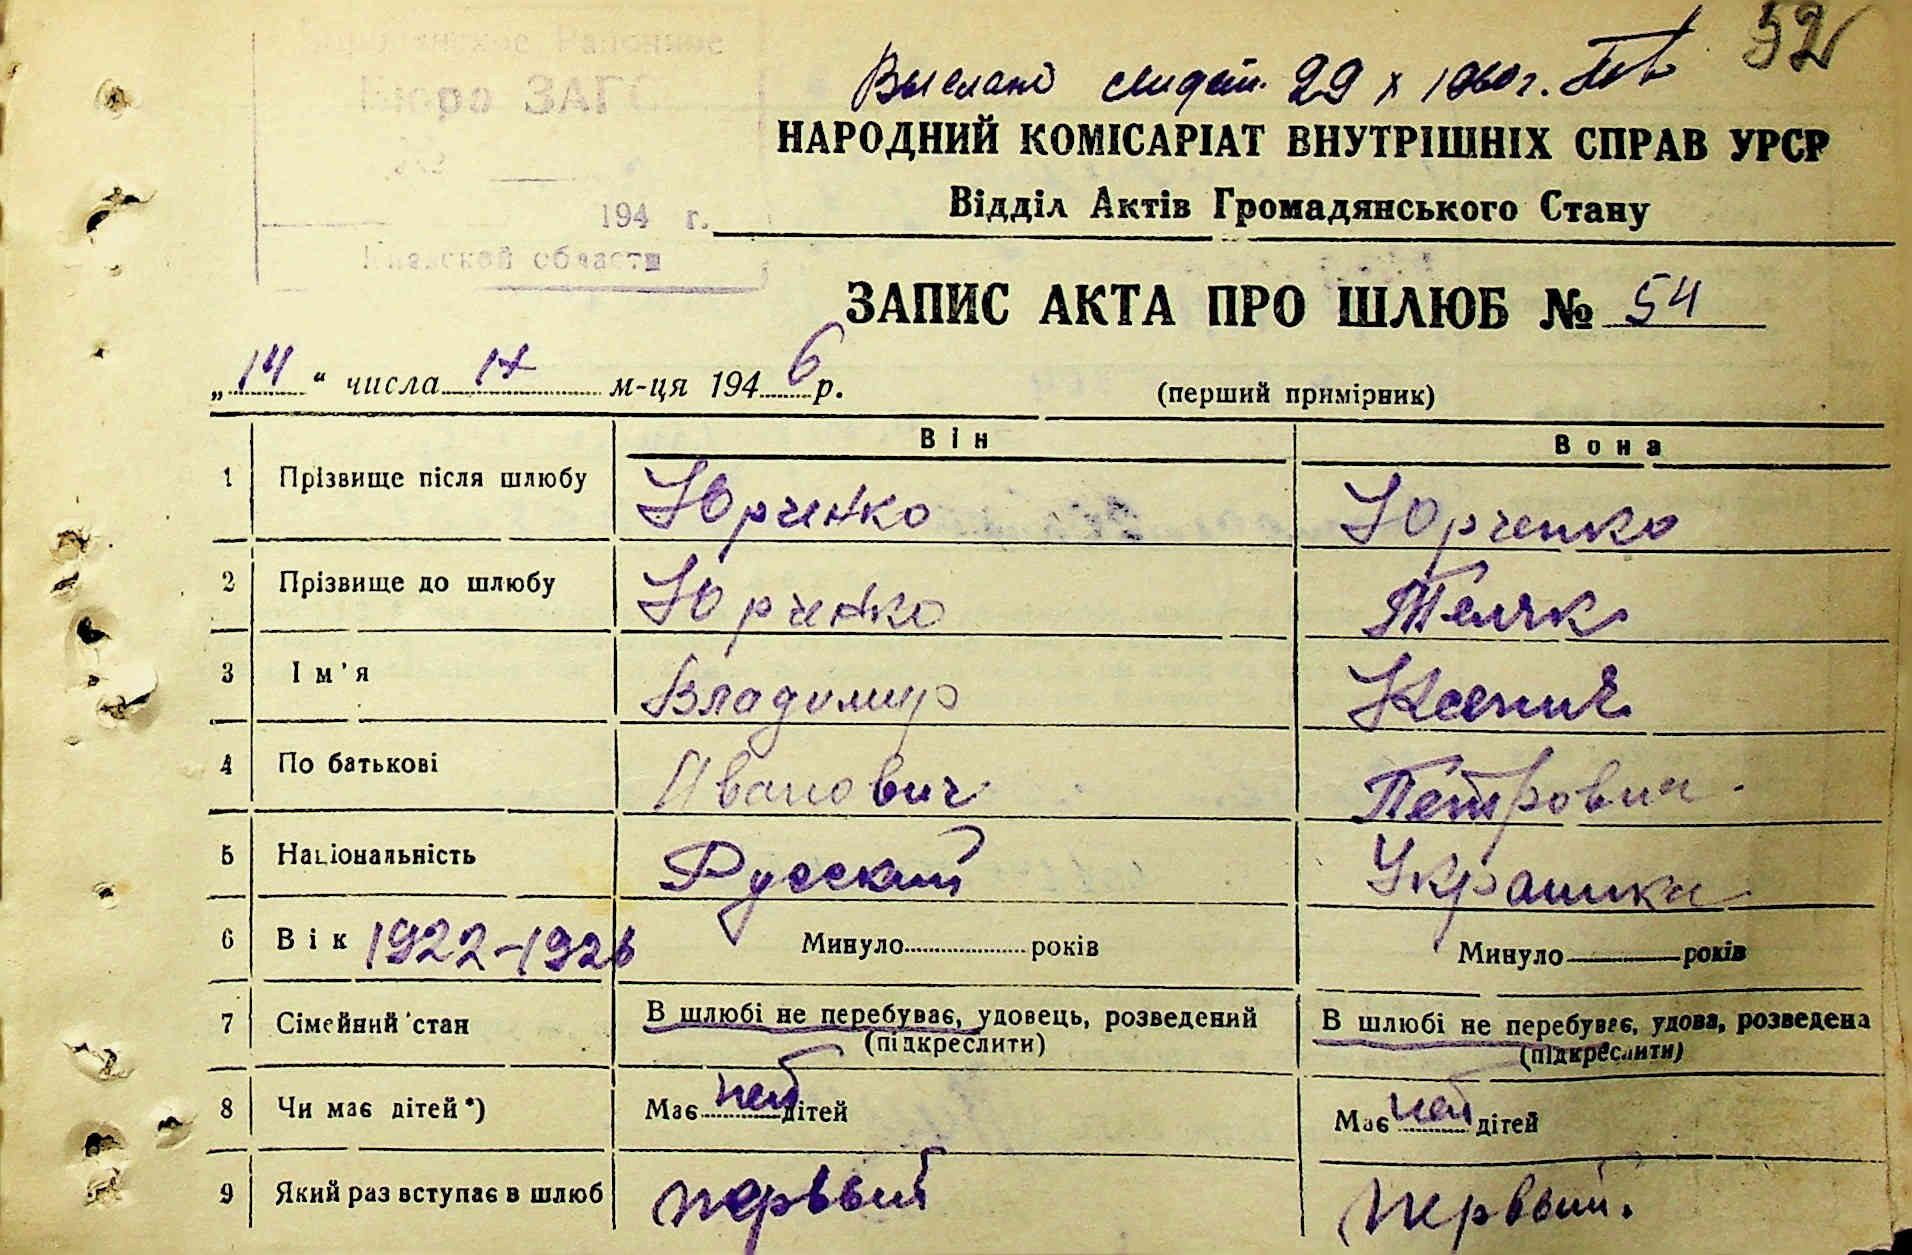 52
Выслано свидет. 29 X 1960 г.
Районное
Бюро ЗАГС
№
194 г.
области
НАРОДНИЙ КОМІСАРІАТ ВНУТРІШНІХ СПРАВ УРСР
Відділ Актів Громадянського Стану
ЗАПИС АКТА ПРО ШЛЮБ № 54
„14“ числа IX м-ця 1946 р.
(перший примірник)
Він Вона
1 Прізвище після шлюбу Юрченко Юрченко
2 Прізвище до шлюбу Юрченко
3 Ім'я Владимир Ксения
4 По батькові Иванович Петровна
5 Національність Русский Украинка
6 Вік 1922-1926 Минуло років Минуло років
7 Сімейний стан В шлюбі не перебуває, удовець, розведений В шлюбі не перебуває, удова, розведена
(підкреслити) (підкреслити)
8 Чи має дітей*) Має нет дітей Має нет дітей
9 Який раз вступає в шлюб первый первый.